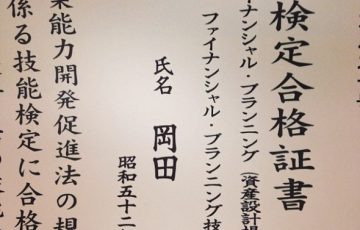 検定合格証書
イナンシャル・プランニング(資産設計提
ファイナンシャル・プランニング技
氏名 岡田
昭和五十二
業能力開発促進法の規
係る技能検定に合格